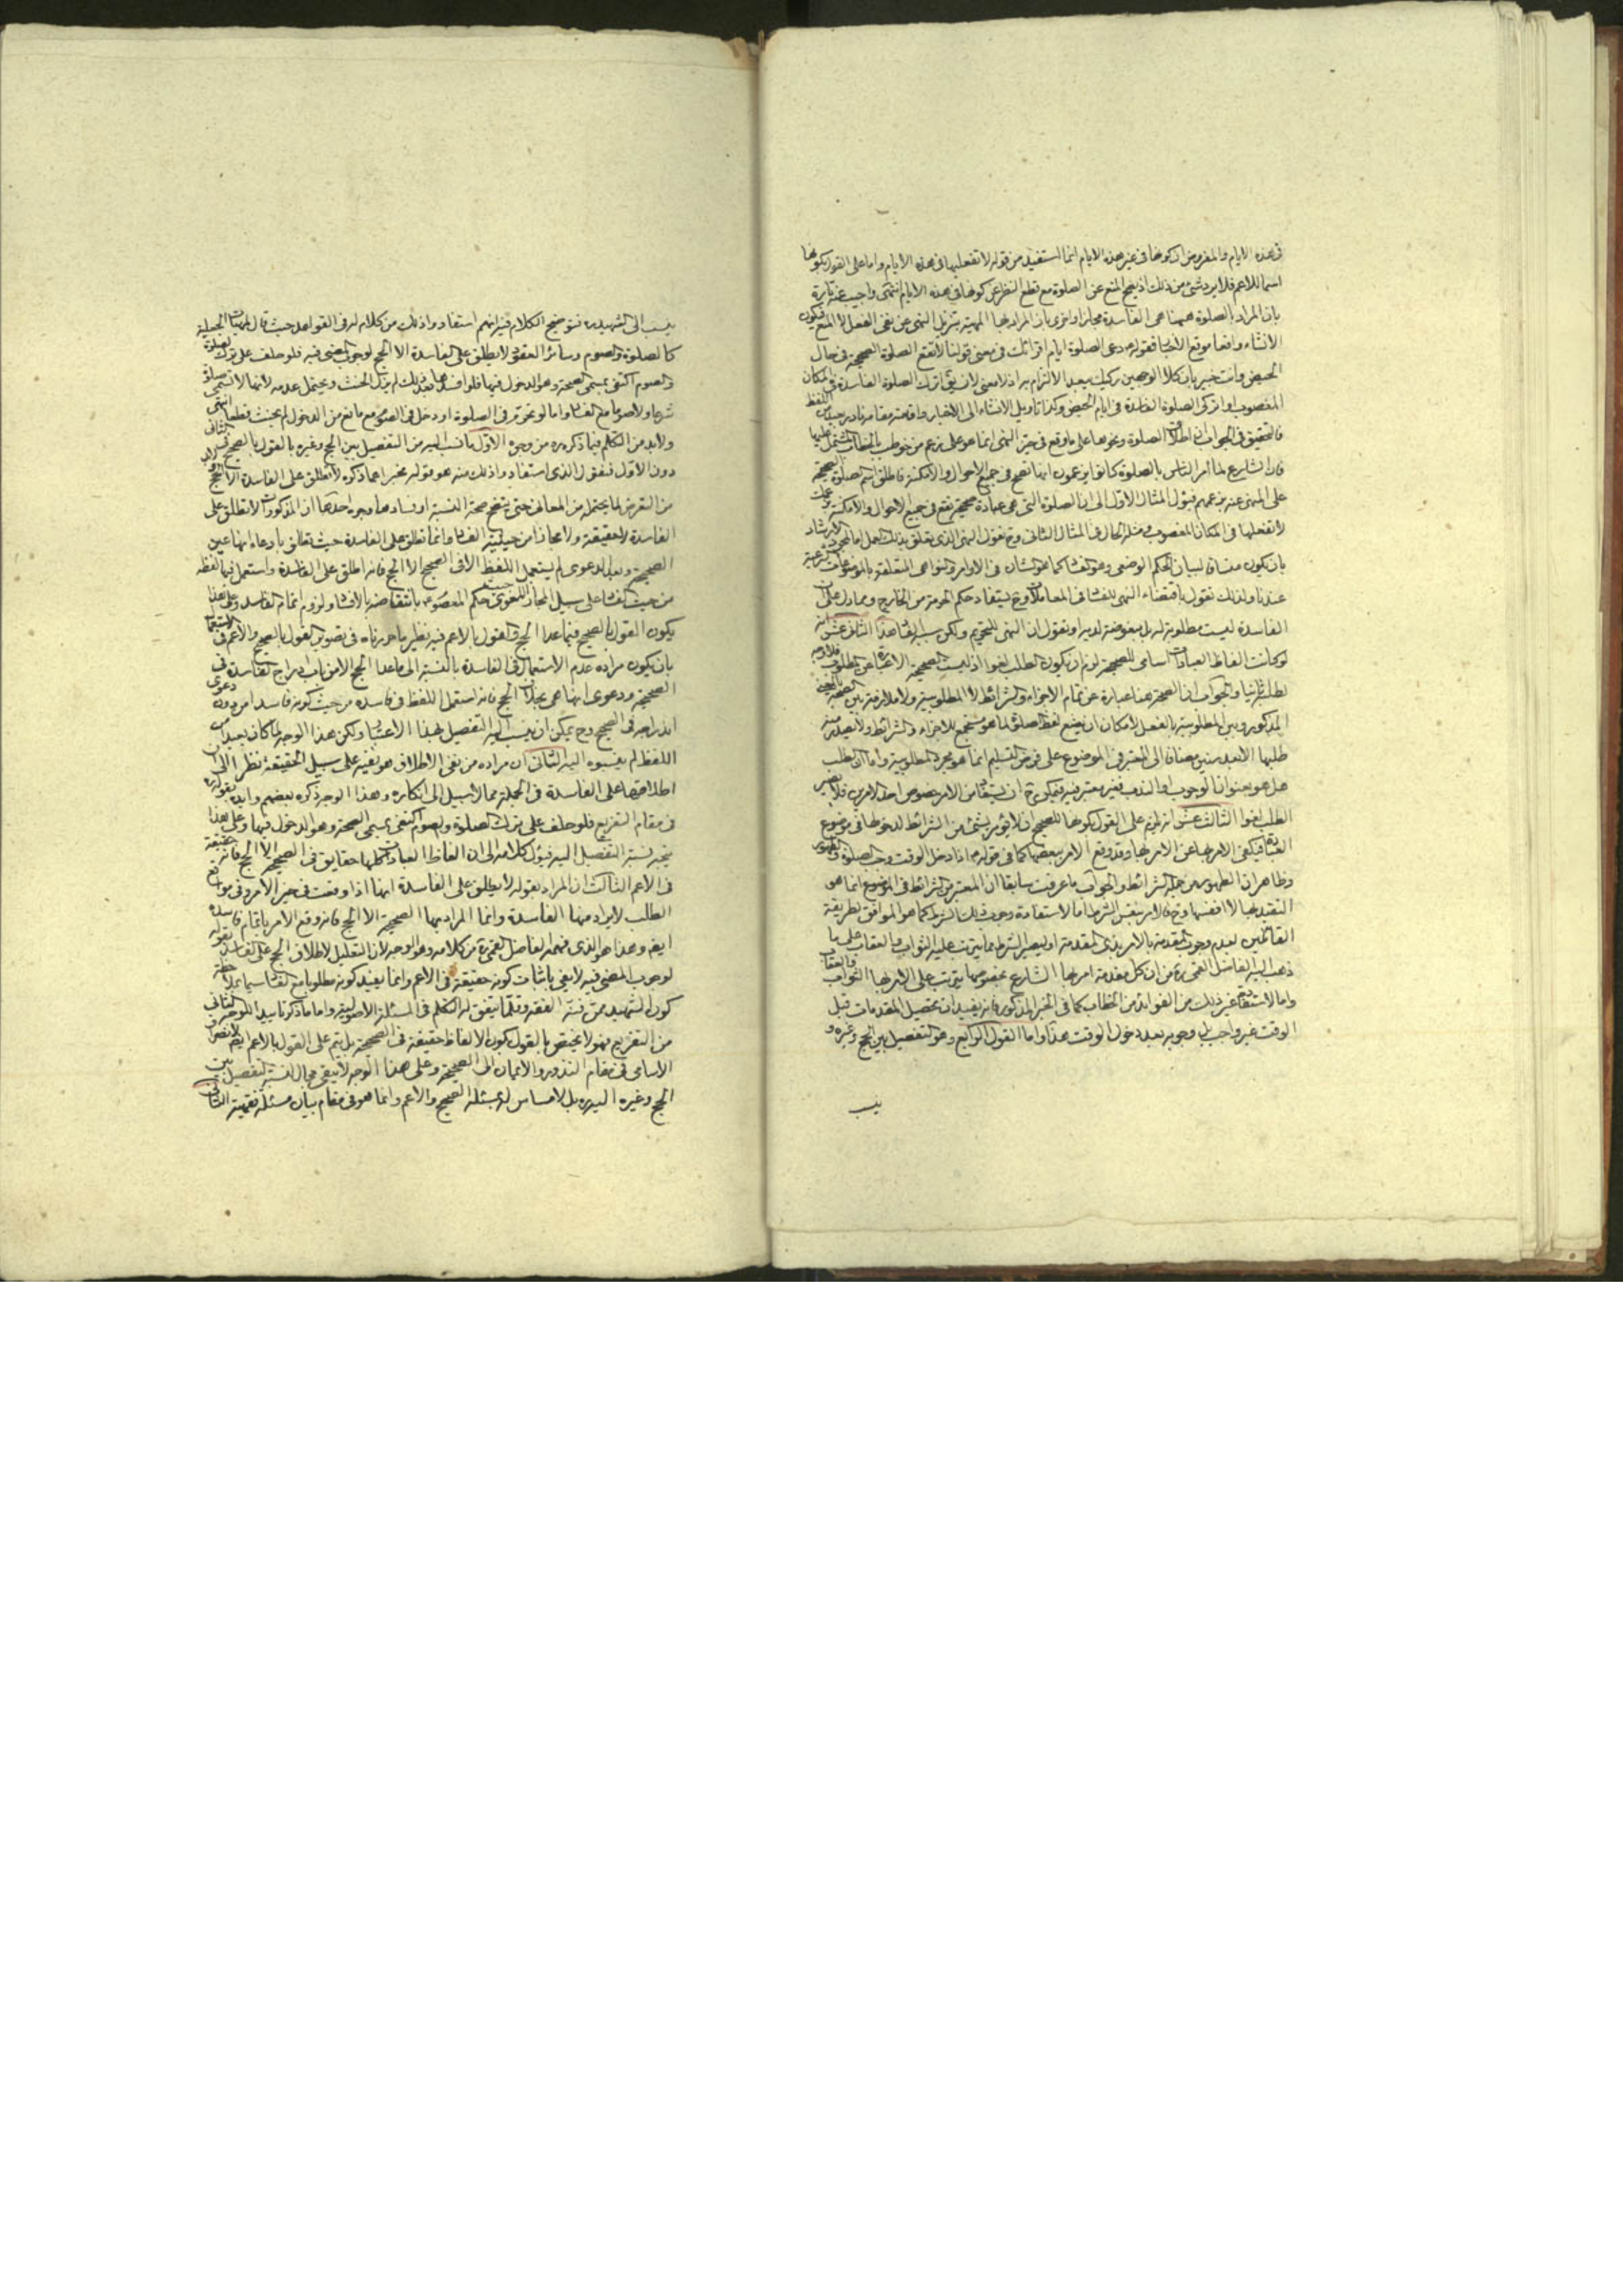 فى هذه الايام والمفروض ان كونها فى غير هذه الايام انما استفيد من قوله لا تفعليها فى هذه الايام واما على القول بكونها
اسما للاعم فلا يرد شئ من ذلك اذ يصح المنع عن الصلوة مع قطع النظر عن كونها فى هذه الايام انتهى واجيب عنه تارة
بان المراد بالصلوة ههنا هى الفاسدة مجازا واخرى بان المراد بها المهية بتنزيل النهى عن نفى الفعل لا المنع فيكون
الانشاء واقعا موقع الاخبار فقوله دعى الصلوة ايام اقرائك فى معنى قولنا لا تقع الصلوة الصحيحة فى حال
الحيض وانت خبير بان كلا الوجهين ركيك بعيد الالتزام به اذ لا معنى لان يق اترك الصلوة الفاسدة فى المكان
المغصوب او اتركى الصلوة الفاسدة فى ايام الحيض وكذا تاويل الانشاء الى الاخبار واقامته مقامه نادر جدا
فالتحقيق فى الجواب ان اطلاق الصلوة ونحوها على ما وقع فى حيز النهى انما هو على زعم من خوطب بالخطاب
فان الشارع لما امر الناس بالصلوة كانوا يزعمون انها تصح فى جميع الاحوال والامكنة فاطلق اسم الصلوة الصحيحة
على المنهى عنه بزعمهم فيؤل المثال الاول الى ان الصلوة التى هى عبادة صحيحة تقع فى جميع الاحوال والامكنة
لا تفعلها فى المكان المغصوب ومثله الحال فى المثال الثانى وح نقول النهى الذى يتعلق بذلك العمل اما لمجرد الارشاد
بان يكون مساقا لبيان الحكم الوضعى وهو الفساد كما هو الشان فى الاوامر والنواهى المتعلقة بالموضوعات الشرعية
عندنا ولذلك نقول باقتضاء النهى للفساد فى المعاملات وح يستفاد حكم الحرمة من الخارج ومما دل على ان
الفاسدة ليست مطلوبة له بل مبغوضة لديه او نقول ان النهى للتحريم ولكن سببه الفساد هذا الثانى عشر انه
لو كانت الفاظ العبادات اسامى للصحيحة لزم ان يكون الطلب لغوا اذ ليست الصحيحة الا عبارة عن المطلوب فلا وجه
لطلبه ثانيا والجواب ان الصحة هنا عبارة عن تمام الاجزاء والشرائط لا المطلوبية ولا ملازمة بين الصحة بالمعنى
المذكور وبين المطلوبية بالفعل لامكان ان يضع لفظ الصلوة لما هو مستجمع للاجزاء والشرائط ولا يصدر منه
طلبها الا بعد سنين مضافا الى ان المعتبر فى الموضوع على فرض التسليم انما هو مجرد المطلوبية واما ان الطلب
هل هو بعنوان الوجوب او الندب فغير معتبر فيه فيكون ح ان يستفاد من الامر خصوص احد الامرين فلا يصير
الطلب لغوا الثالث عشر انه يلزم على القول بكونها للصحيح ان لا يؤمر بشئ من الشرائط لدخولها فى موضوع
العبادة فيكفى الامر بها عن الامر بها وقد وقع الامر ببعضها كما فى قوله اذا دخل الوقت وجب الصلوة والطهور
وظاهر ان الطهور من جملة الشرائط والجواب ما عرفت سابقا ان المعتبر من الشرائط فى الموضوع انما هو
التقيد بها لا انفسها وح فالامر بنفس الشرط اما لاستفادة وجوب ذلك الشرط كما هو الموافق لطريقة
القائلين بعدم وجوب المقدمة بالامر بذى المقدمة او ليصير الشرط مما يترتب عليه الثواب والعقاب على ما
ذهب اليه الفاضل القمى ره من ان كل مقدمة امر بها الشارع بخصوصها يترتب على الامر بها الثواب والعقاب
واما لاستفادة غير ذلك من الفوائد من الخطاب كما فى الخبر المذكور فانه يفيد ان تحصيل المقدمات قبل
الوقت غير واجب بل وجوبه بعد دخول الوقت هذا واما القول الرابع وهو التفصيل بين الحج وغيره و
ينسب
ينسب الى الشهيد ره فتوضيح الكلام فيه انهم استفادوا ذلك من كلامه فى القواعد حيث قال المهيات الجعلية
كالصلوة والصوم وسائر العقود لا يطلق على الفاسدة الا الحج لوجوب المضى فيه فلو حلف على ترك الصلوة
والصوم اكتفى بمسمى الصحة وهو الدخول فيها فلو افسدها بعد ذلك لم يزل الحنث ويحتمل عدمه لانها لا تسمى صلوة
شرعا ولا صوما مع الفساد اما لو تحرم فى الصلوة او دخل فى الصوم مع مانع من الدخول لم يحنث قطعا انتهى
ولا بد من التكلم فيما ذكره ره من وجوه الاول ما نسب اليه من التفصيل بين الحج وغيره بالقول بالصحيح فى الثانى
دون الاول فنقول الذى استفادوا ذلك منه هو قوله لا تطلق على الفاسدة الا الحج
من التعرض لما يحتمله من المعانى حتى يتضح صحة النسبة او فسادها وجوه احدها ان المذكورات لا تطلق على
الفاسدة لا حقيقة ولا مجازا من حيثية الفساد وانما تطلق على الفاسدة حيث تطلق بادعاء انها عين
الصحيحة وبعد الدعوى لم يستعمل اللفظ الا فى الصحيح الا الحج فانه اطلق على الفاسدة واستعمل فيها لفظه
من حيث الفساد على سبيل المجاز اللغوى حكم المعصوم بانتقاضه بالافساد ولزوم اتمام الفاسد وعلى هذا
يكون القول بالصحيح فيما عدا الحج والقول بالاعم فيه نظير ما حررناه فى تصوير القول بالصحيح والاعم فى
بان يكون مراده عدم الاستعمال فى الفاسدة بالنسبة الى ما عدا الحج الا من باب ادراج الفاسدة فى
الصحيحة ودعوى انها هى بخلاف الحج فانه استعمل اللفظ فى فاسده من حيث كونه فاسدا من دون دعوى
اندراجه فى الصحيح وح يمكن ان ينسب اليه التفصيل بهذا الاعتبار ولكن هذا الوجه لما كان بعيدا من
اللفظ لم ينسبوه اليه الثانى ان مراده من نفى الاطلاق هو نفيه على سبيل الحقيقة نظرا الى ان
اطلاقها على الفاسدة فى الجملة مما لا سبيل الى انكاره وهذا الوجه ذكره بعضهم وايده بقوله
فى مقام التفريع فلو حلف على ترك الصلوة والصوم اكتفى بمسمى الصحة وهو الدخول فيها وعلى هذا
يتجه نسبة التفصيل اليه فيؤل كلامه الى ان الفاظ العبادات كلها حقايق فى الصحيحة الا الحج فانه حقيقة
فى الاعم الثالث ان المراد بقوله لا يطلق على الفاسدة انها اذا وقعت فى حيز الامر وفى موقع
الطلب لا يراد منها الفاسدة وانما المراد بها الصحيحة الا الحج فانه وقع الامر باتمام فاسده
ايضا وهذا هو الذى فهمه الفاضل القمى ره من كلامه وهو الوجه لان التعليل لاطلاق الحج على الفاسد بقوله
لوجوب المضى فيه لا يفى باثبات كونه حقيقة فى الاعم وانما يفيد كونه مطلوبا مع الفساد سيما بملاحظة
كون الشهيد ممن فنه الفقه وقلما يتفق له التكلم فى المسئلة الاصولية واما ما ذكر تاييدا للوجه الثانى
من التفريع فهو لا يختص بالقول بكون الالفاظ حقيقة فى الصحيحة بل يتم على القول بالاعم ايضا لانصراف
الاسامى فى مقام النذور والايمان الى الصحيحة وعلى هذا الوجه لا يبقى مجال لنسبة التفصيل بين
الحج وغيره اليه ره بل لا مساس له بمسئلة الصحيح والاعم وانما هو فى مقام بيان مسئلة فقهية الثانى